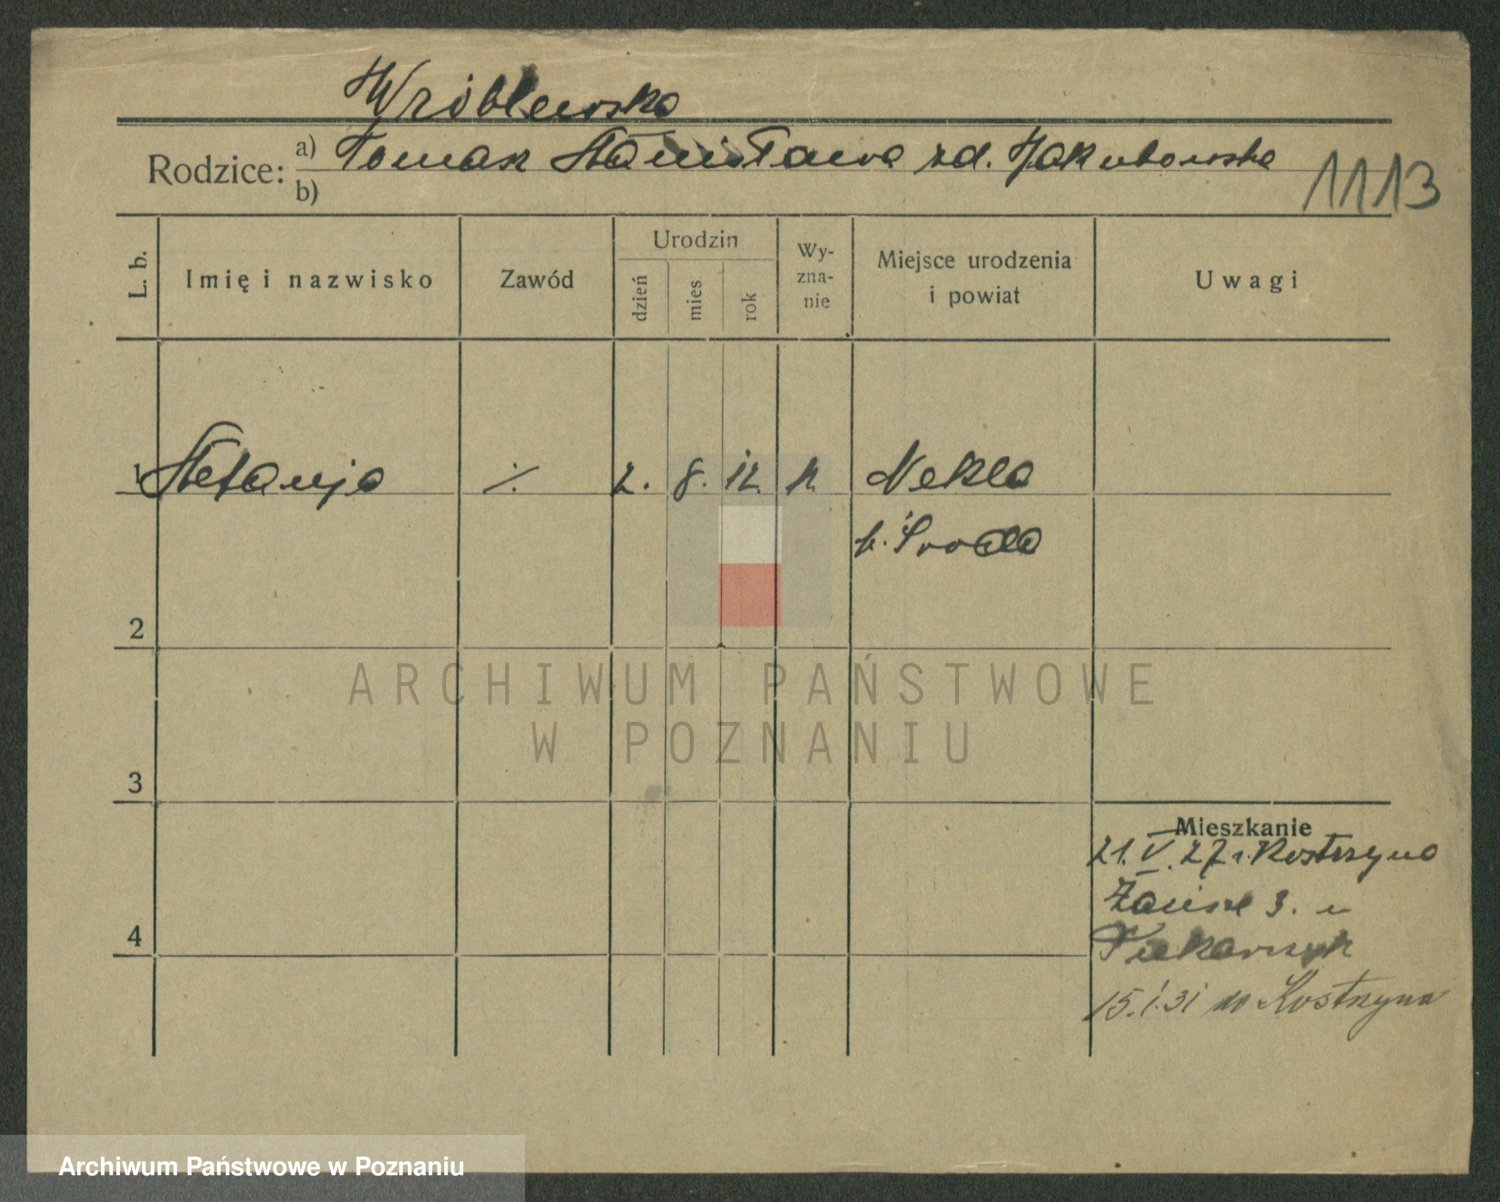 Wróblewska
Rodzice: a) Tomasz Stanisława zd. Jakubowska
b)
1113
L. b.
Imię i nazwisko
Zawód
Urodzin
dzień
mies
rok
Wy-
zna-
nie
Miejsce urodzenia
i powiat
Uwagi
1 Stefanja ./. 2. 8. 12. k. Nekla
p. Środa
2
3
4
Mieszkanie
21.V.27 z Kostrzyna
3. u
Piekarczyk
15.1.31 do Kostrzyna
ARCHIWUM PAŃSTWOWE
W POZNANIU
Archiwum Państwowe w Poznaniu